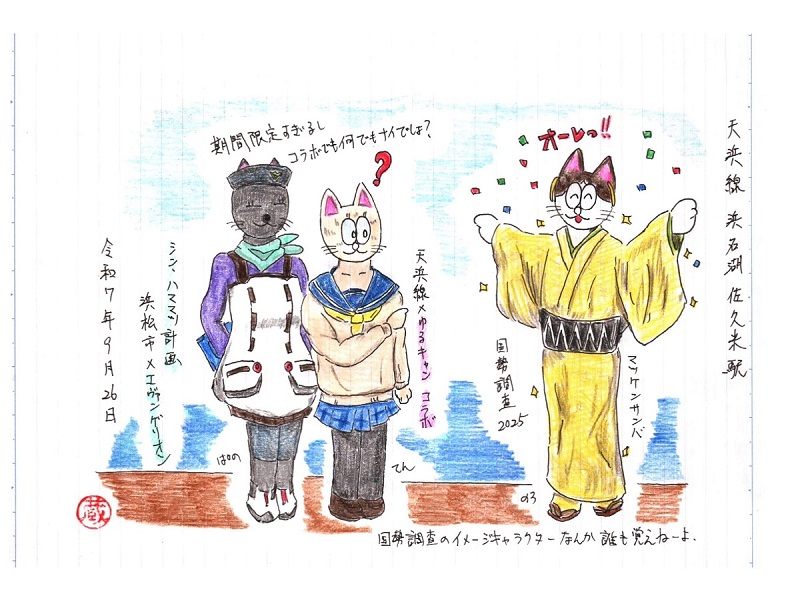 天浜線 浜名湖佐久米駅
オーレっ!!
期間限定すぎるし
コラボでも何でもナイでしょ?
?
天浜線×ゆるキャン コラボ
シン、ハママツ計画
浜松市×エヴァンゲリオン
令和7年9月26日
国勢調査
2025
マツケンサンバ
ぱの
てん
のろ
蔵
国勢調査のイメージキャラクターなんか誰も覚えねーよ.